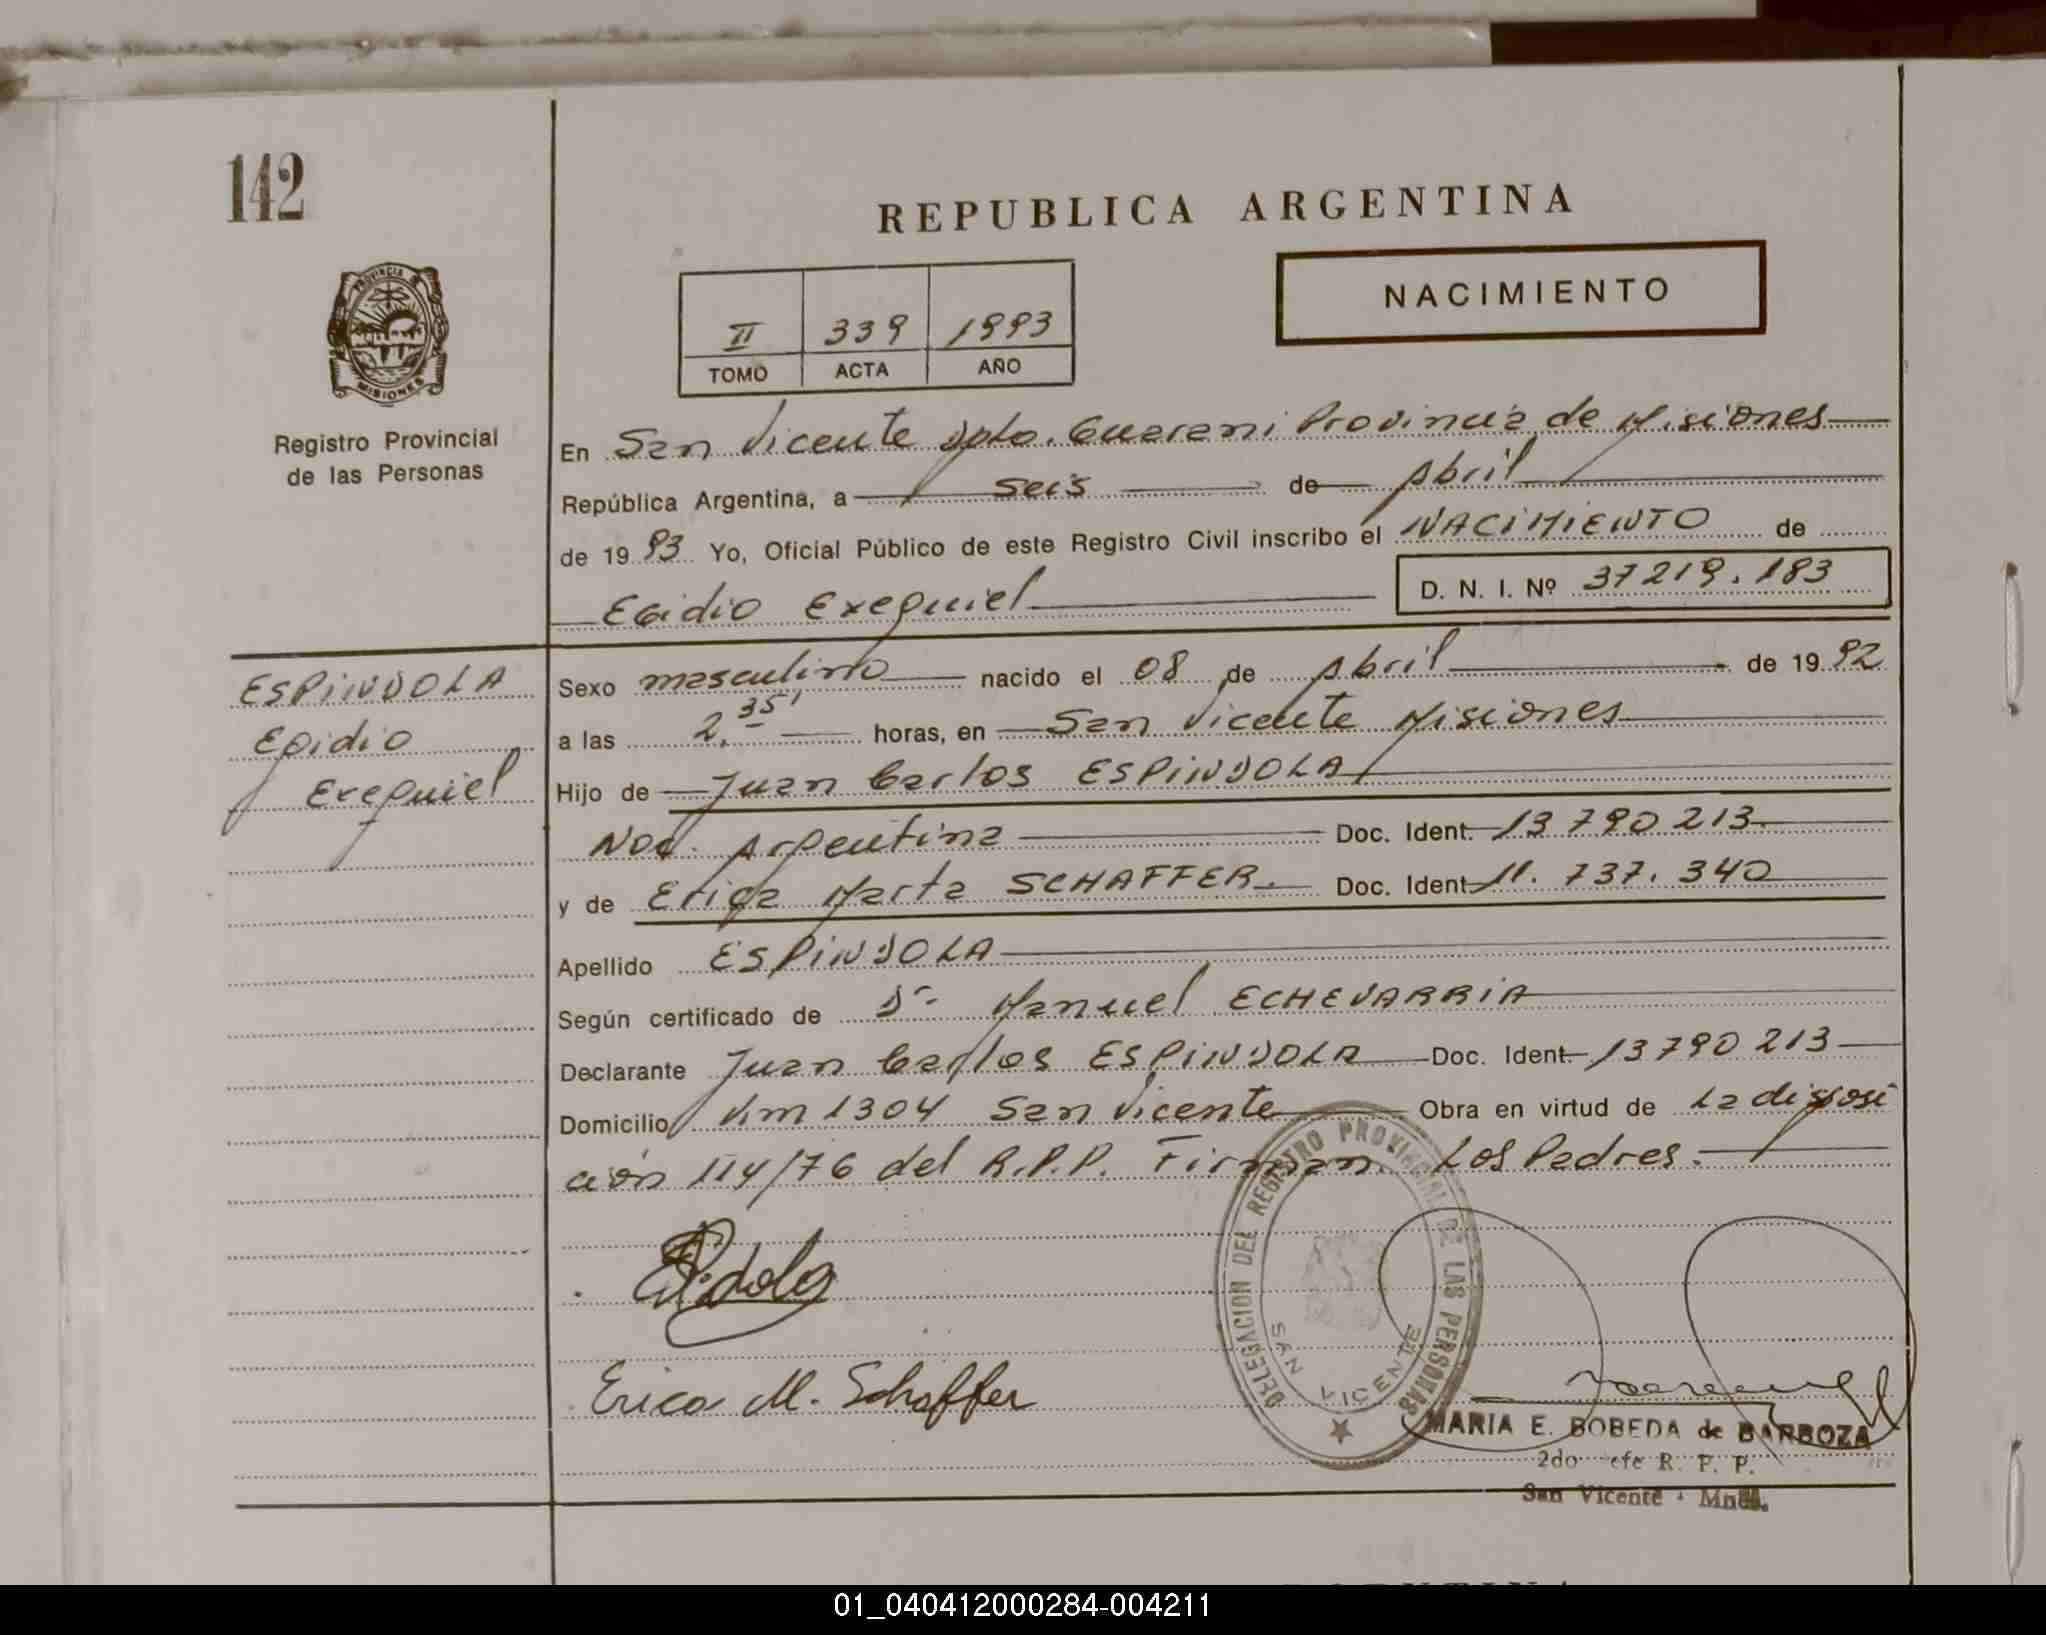 142
REPUBLICA ARGENTINA
NACIMIENTO
II 339 1993
TOMO ACTA AÑO
PROVINCIA DE MISIONES
Registro Provincial
de las Personas
En San Vicente Dpto. Guarani Provincia de Misiones
República Argentina, a seis de Abril
de 1993 Yo, Oficial Público de este Registro Civil inscribo el NACIMIENTO de
Egidio Exequiel D. N. I. Nº 37219.183
ESPINDOLA
Egidio
Exequiel
Sexo masculino nacido el 08 de Abril de 1992
a las 2.35' horas, en San Vicente Misiones
Hijo de Juan Carlos ESPINDOLA
Nac. Argentina Doc. Ident. 13790213
y de Erica Marta SCHAFFER. Doc. Ident 11.737.340
Apellido ESPINDOLA
Según certificado de Dr. Manuel ECHEVARRIA
Declarante Juan Carlos ESPINDOLA Doc. Ident. 13790213
Domicilio Km 1304 San Vicente Obra en virtud de La disposi
ción 114/76 del R.P.P. Firman Los Padres.
Erica M. Schaffer
DELEGACION DEL REGISTRO PROVINCIAL DE LAS PERSONAS
SAN VICENTE
MARIA E. BOBEDA de BARBOZA
2do efe R. P. P.
San Vicente - Mnes.
01_040412000284-004211